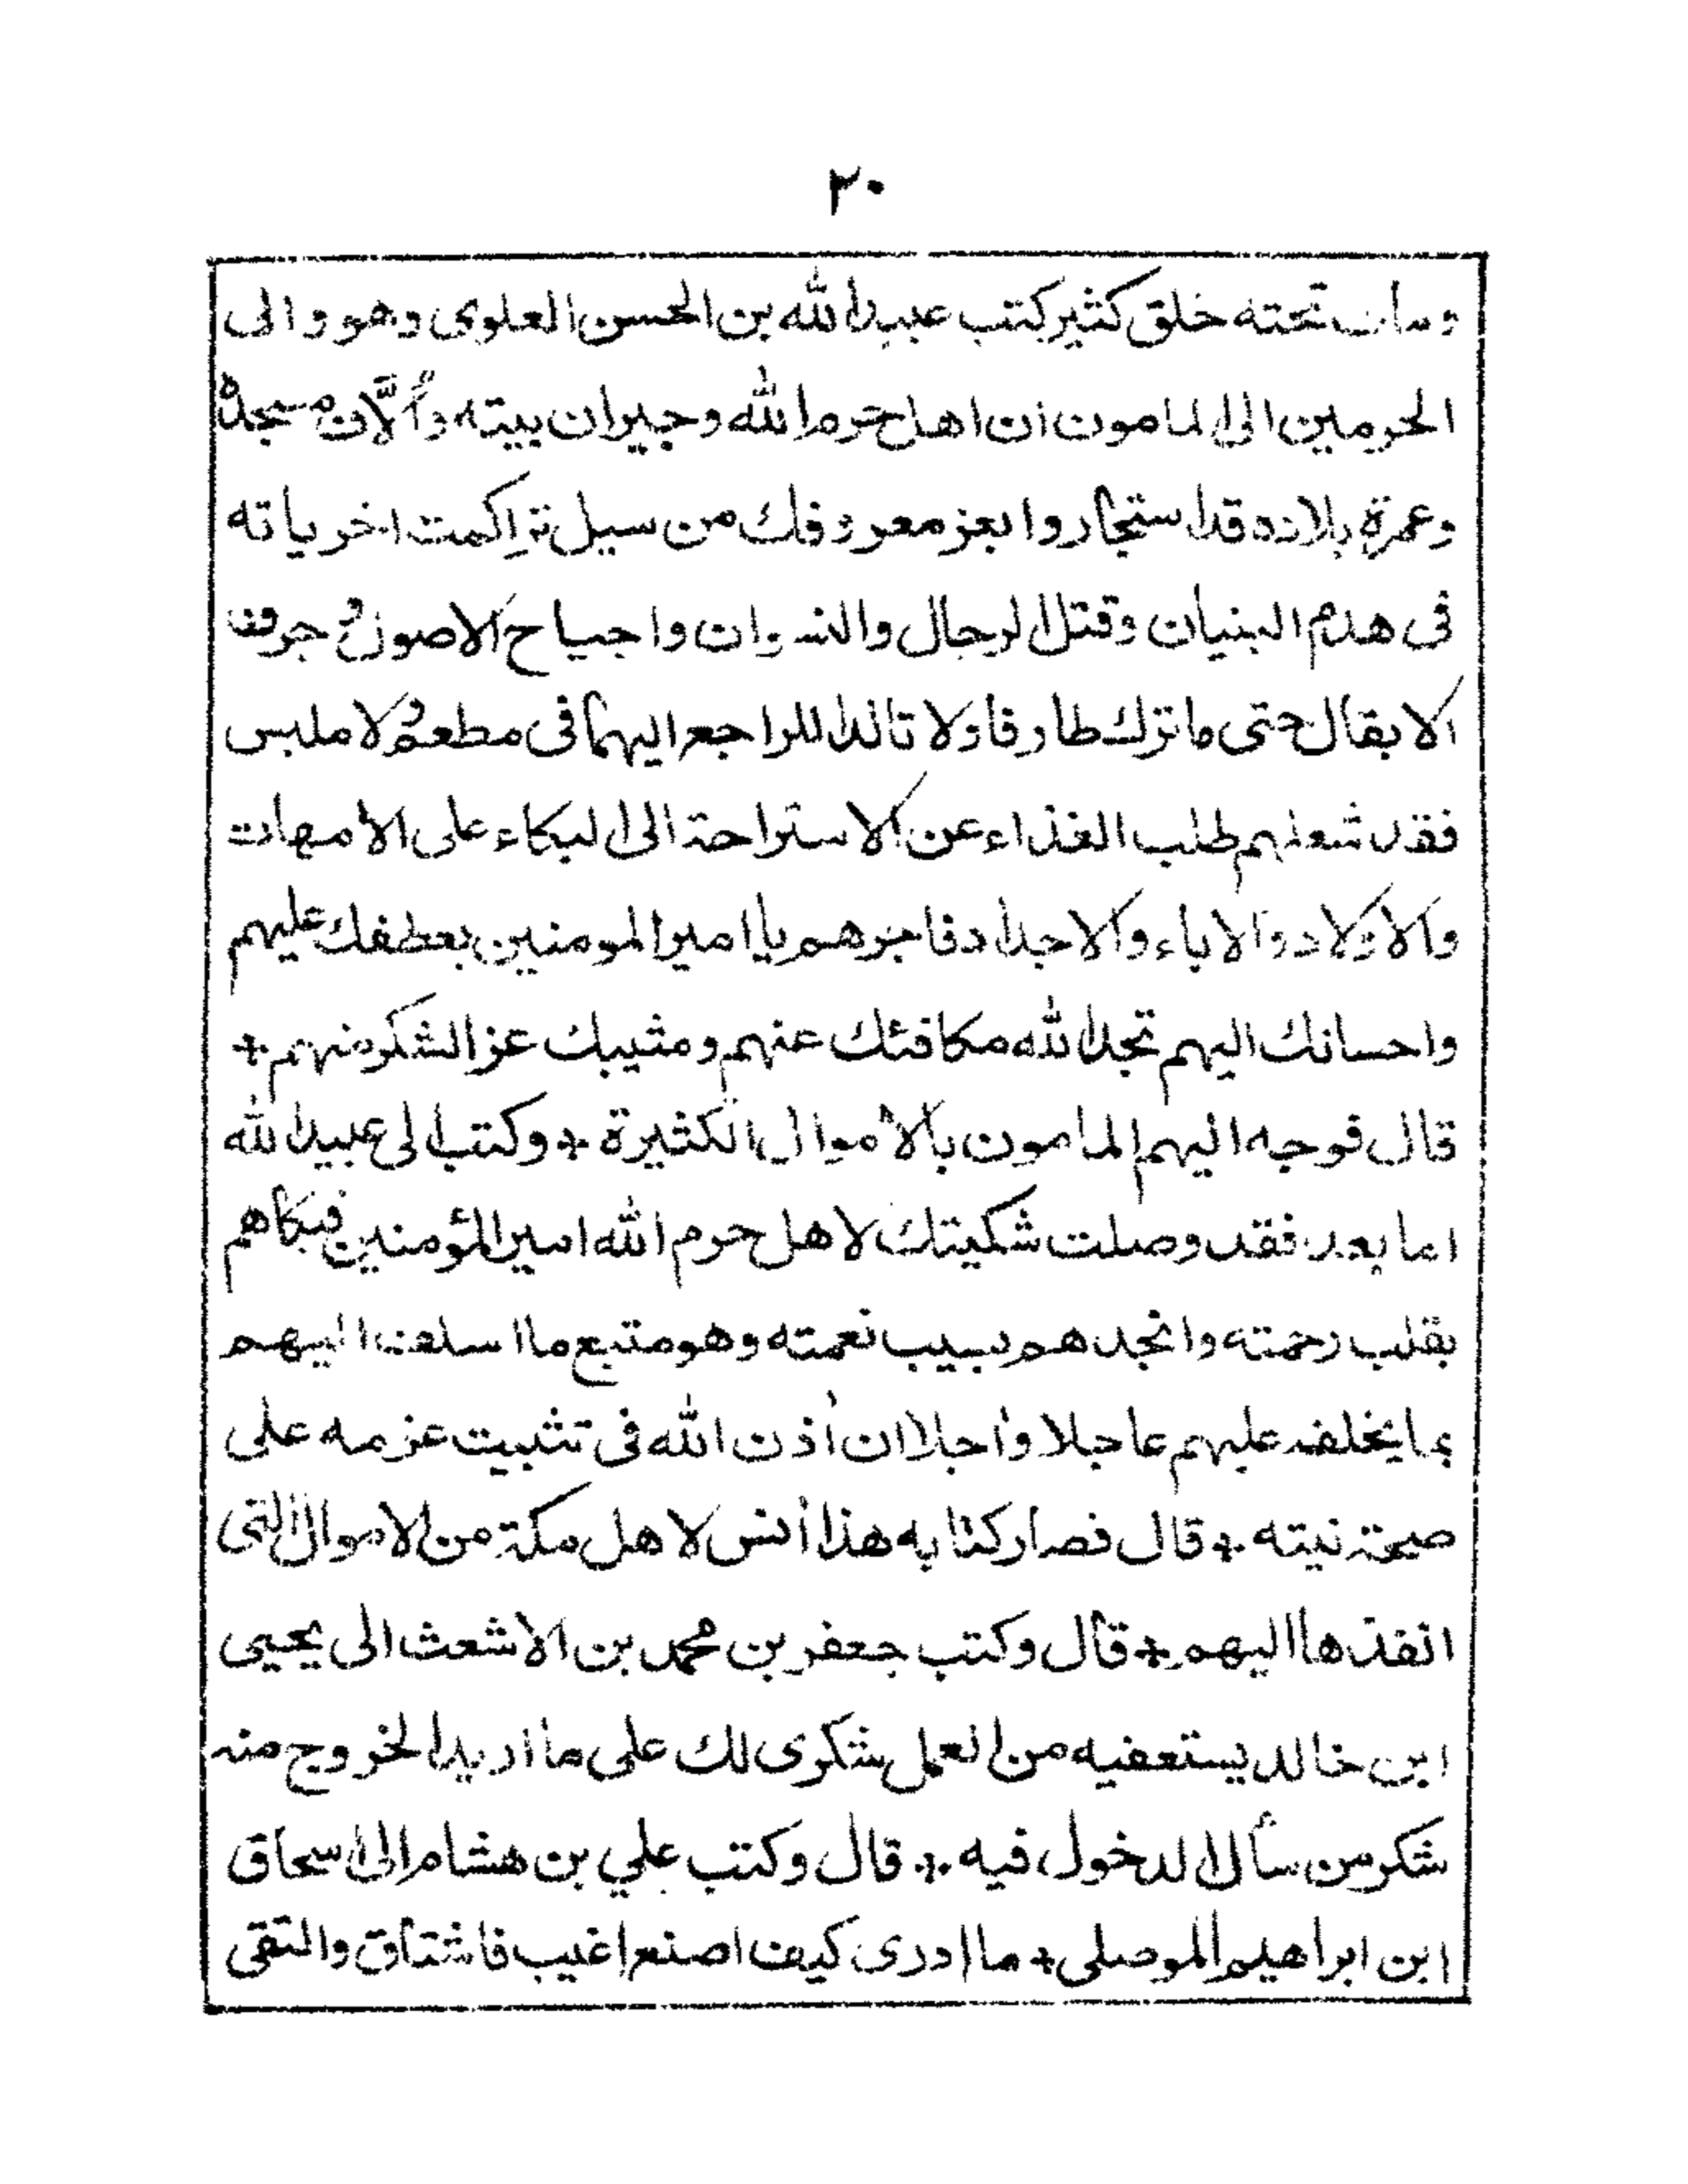 ٢٠
ومات تحته خلق كثير كتب عبيد الله بن الحسن العلوى وهو والى
الحرمين الى المامون ان اهل حرم الله وجيران بيته وألّاف مسجده
وعمرة بلاده قد استجاروا بعز معروفك من سيل تراكمت اخرياته
فى هدم البنيان وقتل الرجال والنسوان واجياح الاصول وجرف
الابقال حتى ما ترك طارفا ولا تالدا للراجع اليهما فى مطعم ولا ملبس
فقد شغلهم طلب الغذاء عن الاستراحة الى البكاء على الامهات
والاولاد والاباء والاجداد فاجرهم يا امير المومنين بعطفك عليهم
واحسانك اليهم تجد الله مكافئك عنهم ومثيبك عز الشكر منهم +
قال فوجه اليهم المامون بالاموال الكثيرة + وكتب الى عبيد الله
اما بعد فقد وصلت شكيتك لاهل حرم الله امير المؤمنين فبكاهم
بقلب رحمته وانجدهم بسيب نعمته وهو متبع ما اسلف اليهم
بما يخلفه عليهم عاجلا واجلا ان أذن الله فى تثبيت عزمه على
صحة نيته + قال فصار كتابه هذا أنس لاهل مكة من الاموال التى
انفذها اليهم + قال وكتب جعفر بن محمد بن الاشعث الى يحيى
ابن خالد يستعفيه من العمل شكرى لك على ما اريد الخروج منه
شكر من سأل الدخول فيه + قال وكتب علي بن هشام الى اسحاق
ابن ابراهيم الموصلى + ما ادرى كيف اصنع اغيب فاشتاق والتقى